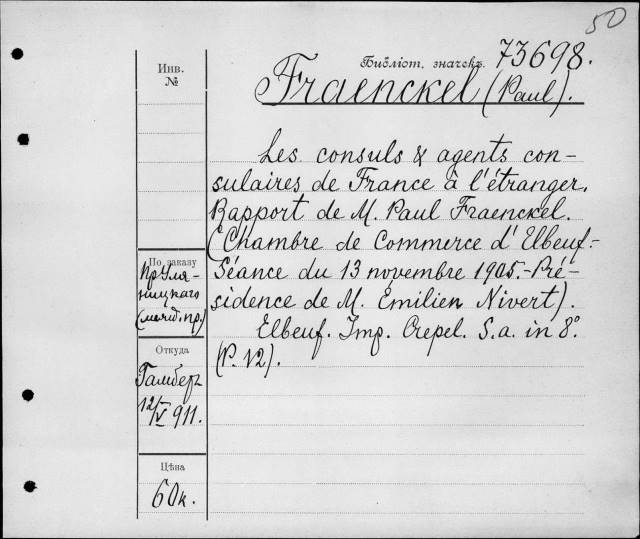 50
Библіот. значекъ 73698.
Инв.
№
Fraenckel (Paul).
Les consuls & agents con-
sulaires de France à l'étranger.
Rapport de M. Paul Fraenckel.
(Chambre de Commerce d'Elbeuf.-
Séance du 13 novembre 1905.-Pré-
sidence de M. Emilien Nivert).
Elbeuf. Imp. Crepel. S.a. in 8°.
(P. 12).
По заказу
Пр Уля-
ницкаго
(межд. пр.)
Откуда
Гамбер
12/V 911.
Цѣна
60к.